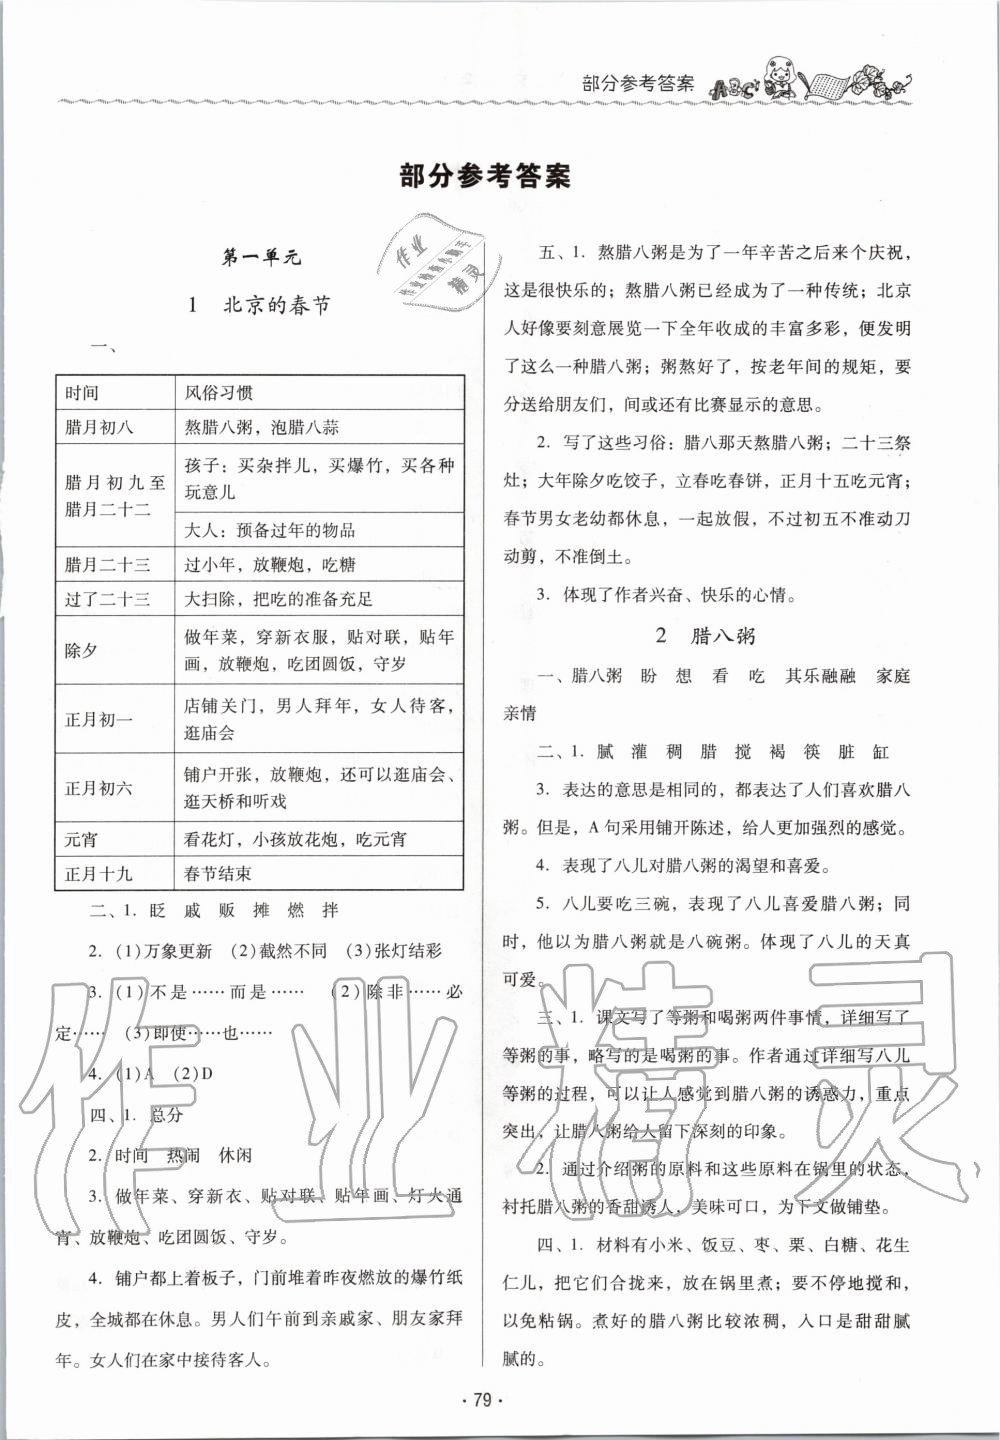 部分参考答案
部分参考答案
第一单元
1 北京的春节
一、
时间 风俗习惯
腊月初八 熬腊八粥，泡腊八蒜
腊月初九至
腊月二十二
孩子：买杂拌儿，买爆竹，买各种
玩意儿
大人：预备过年的物品
腊月二十三 过小年，放鞭炮，吃糖
过了二十三 大扫除，把吃的准备充足
除夕
做年菜，穿新衣服，贴对联，贴年
画，放鞭炮，吃团圆饭，守岁
正月初一
店铺关门，男人拜年，女人待客，
逛庙会
正月初六
铺户开张，放鞭炮，还可以逛庙会、
逛天桥和听戏
元宵 看花灯，小孩放花炮，吃元宵
正月十九 春节结束
二、1. 眨 戚 贩 摊 燃 拌
2. (1)万象更新 (2)截然不同 (3)张灯结彩
3. (1)不是……而是…… (2)除非……必
定…… (3)即使……也……
4. (1)A (2)D
四、1. 总分
2. 时间 热闹 休闲
3. 做年菜、穿新衣、贴对联、贴年画、灯火通
宵、放鞭炮、吃团圆饭、守岁。
4. 铺户都上着板子，门前堆着昨夜燃放的爆竹纸
皮，全城都在休息。男人们午前到亲戚家、朋友家拜
年。女人们在家中接待客人。
五、1. 熬腊八粥是为了一年辛苦之后来个庆祝，
这是很快乐的；熬腊八粥已经成为了一种传统；北京
人好像要刻意展览一下全年收成的丰富多彩，便发明
了这么一种腊八粥；粥熬好了，按老年间的规矩，要
分送给朋友们，间或还有比赛显示的意思。
2. 写了这些习俗：腊八那天熬腊八粥；二十三祭
灶；大年除夕吃饺子，立春吃春饼，正月十五吃元宵；
春节男女老幼都休息，一起放假，不过初五不准动刀
动剪，不准倒土。
3. 体现了作者兴奋、快乐的心情。
2 腊八粥
一、腊八粥 盼 想 看 吃 其乐融融 家庭
亲情
二、1. 腻 灌 稠 腊 搅 褐 筷 脏 缸
3. 表达的意思是相同的，都表达了人们喜欢腊八
粥。但是，A 句采用铺开陈述，给人更加强烈的感觉。
4. 表现了八儿对腊八粥的渴望和喜爱。
5. 八儿要吃三碗，表现了八儿喜爱腊八粥；同
时，他以为腊八粥就是八碗粥。体现了八儿的天真
可爱。
三、1. 课文写了等粥和喝粥两件事情，详细写了
等粥的事，略写的是喝粥的事。作者通过详细写八儿
等粥的过程，可以让人感觉到腊八粥的诱惑力，重点
突出，让腊八粥给人留下深刻的印象。
2. 通过介绍粥的原料和这些原料在锅里的状态，
衬托腊八粥的香甜诱人，美味可口，为下文做铺垫。
四、1. 材料有小米、饭豆、枣、栗、白糖、花生
仁儿，把它们合拢来，放在锅里煮；要不停地搅和，
以免粘锅。煮好的腊八粥比较浓稠，入口是甜甜腻
腻的。
· 79 ·
作业
作业检查小助手
精灵
作业精灵